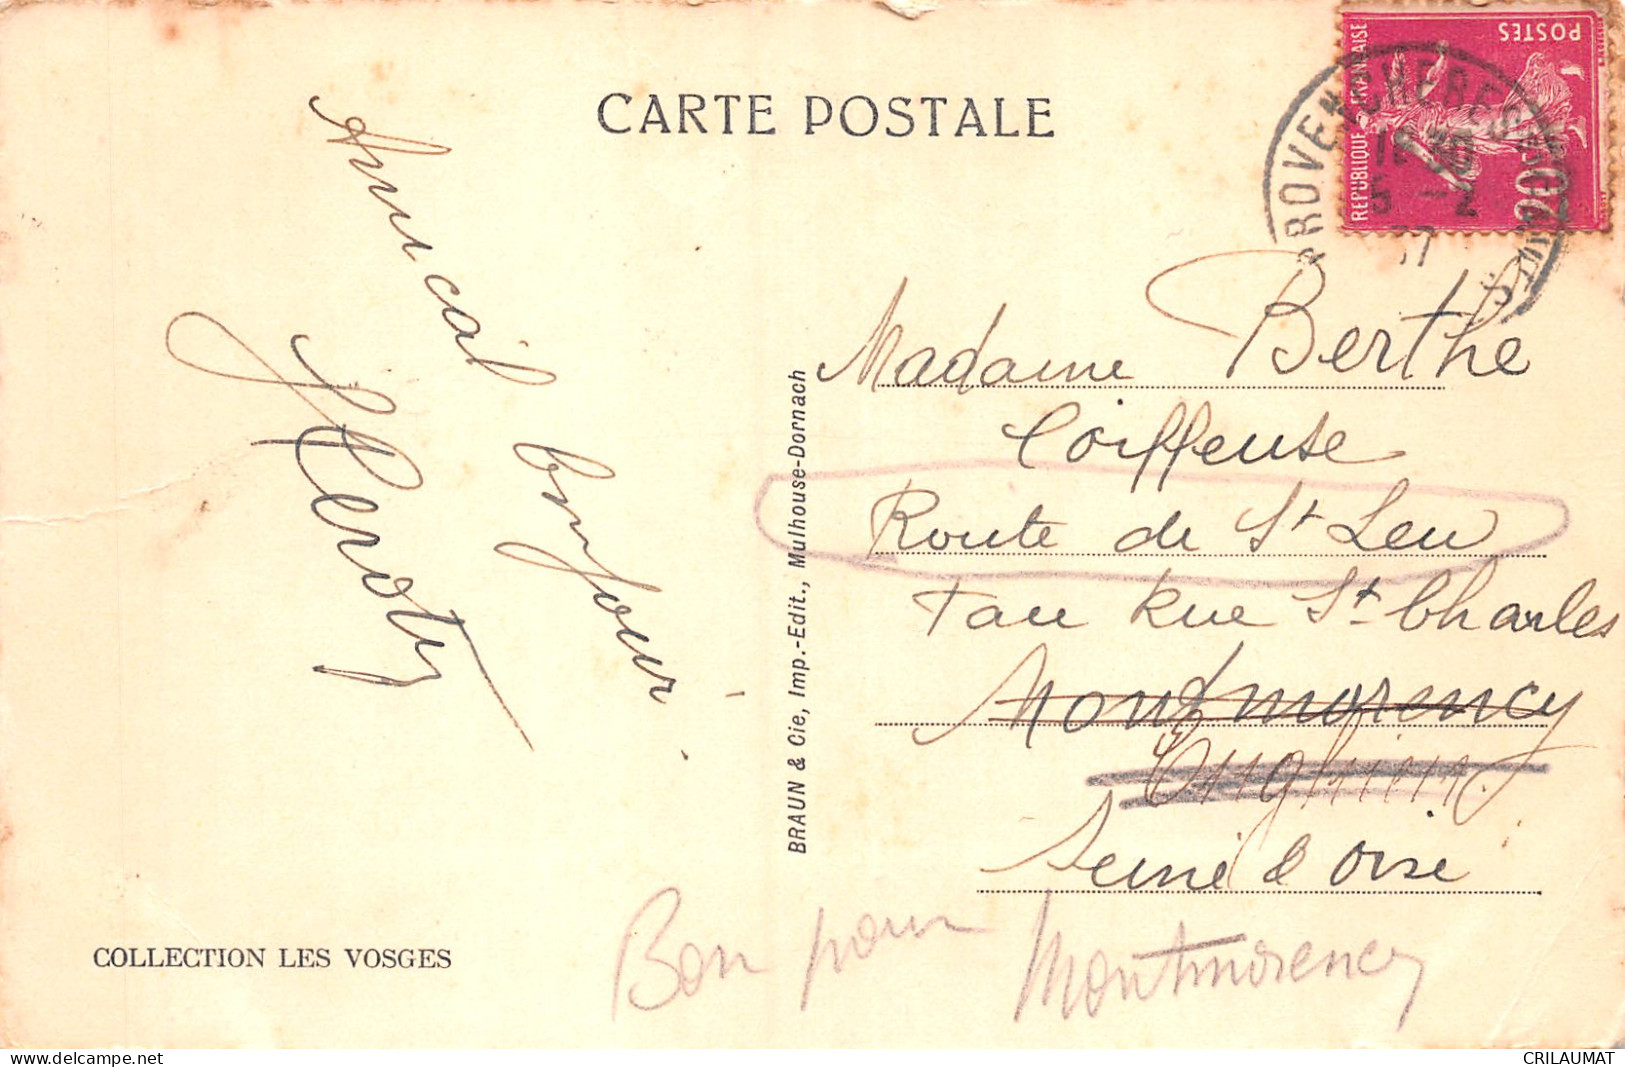 CARTE POSTALE
RÉPUBLIQUE FRANÇAISE
POSTES
PROVENCHÈRES
5 -2
37
Amical bonjour
Madame Berthe
Coiffeuse
Route de St Leu
rue St Charles
Montmorency
Enghien
Seine & Oise
Bon pour Montmorency
BRAUN & Cie, Imp.-Edit., Mulhouse-Dornach
COLLECTION LES VOSGES
https://www.delcampe.net
CRILAUMAT